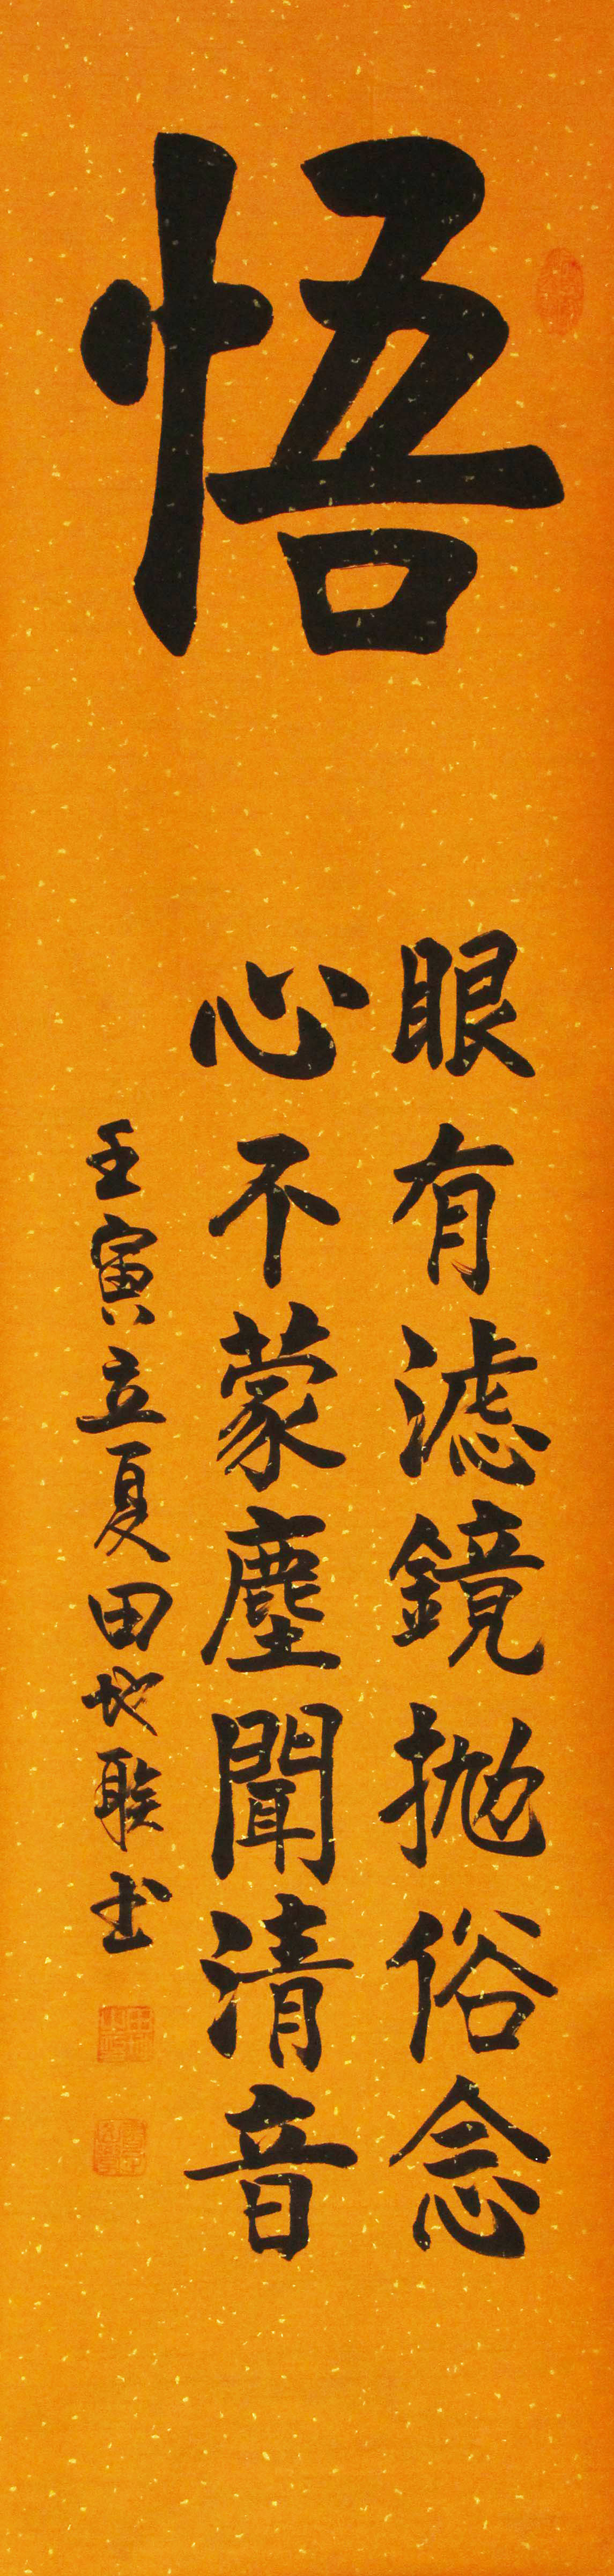 悟
眼有滤鏡抛俗念
心不蒙塵聞清音
壬寅立夏田地聯书